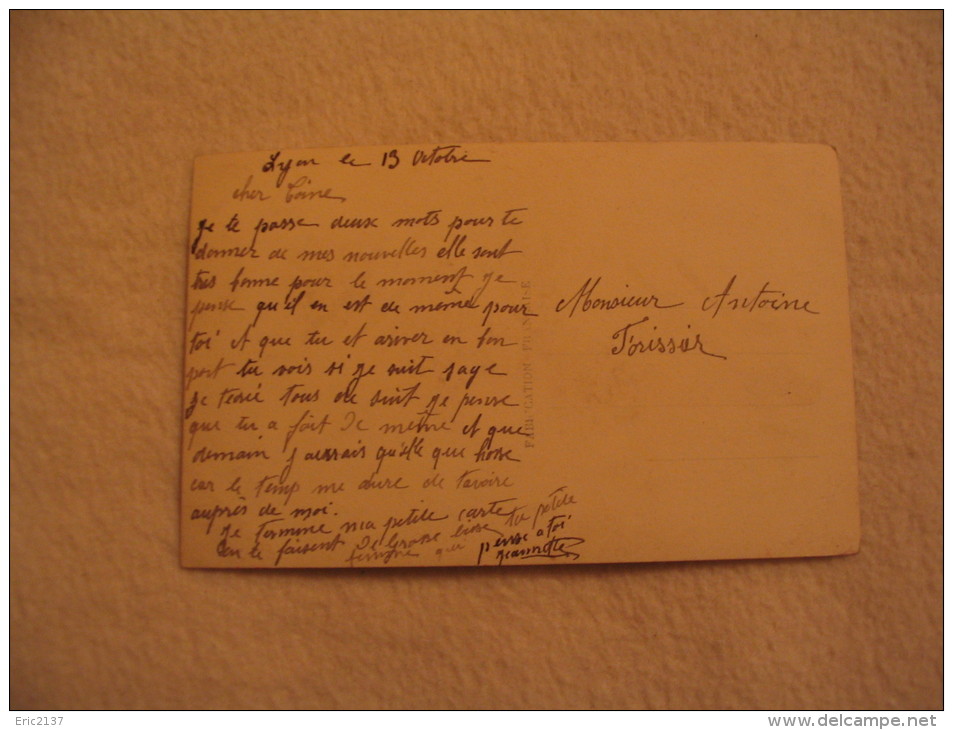 Lyon le 13 Octobre
cher Toine
Je te passe deux mots pour te
donner de mes nouvelles elle sont
très bonne pour le moment je
pense qu'il en est de même pour
toi et que tu et ariver en bon
port tu vois si je suit sage
Je técrié tous de suit je pense
que tu a fait de même et que
demain j aurrais qu'elle que chose
car le temp me dure de tavoire
auprès de moi.
Je termine ma petite carte
en te faisent de Grosse bise ta petite
femme qui pense a toi
Jeannette
Monsieur Antoine
Forissier
FABRICATION FRANÇAISE
Eric2137
www.delcampe.net